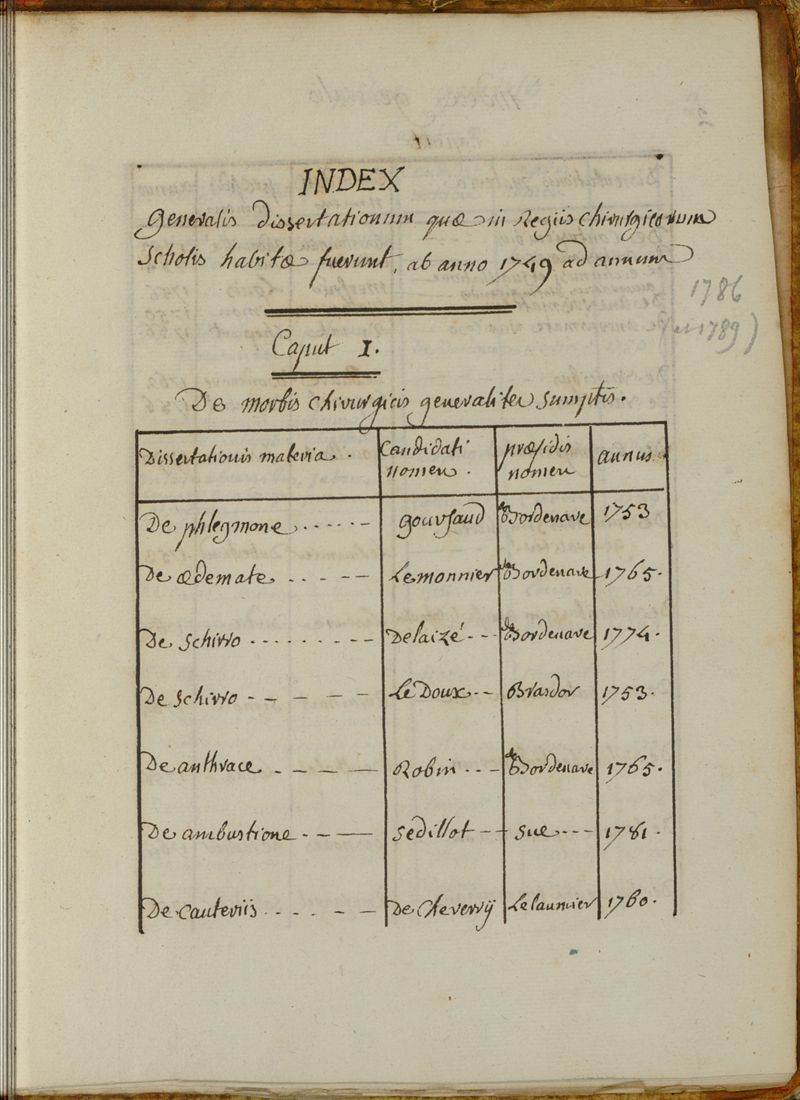 INDEX
generalis dissertationum quæ in Regiis chirurgicorum
Scholis habitæ fuerunt, ab anno 1749 ad annum
1786
1789)
Caput I.
De morbis chirurgicis generaliter sumptis.
Dissertationis materia . Candidati nomen . præsidis nomen annus.
De phlegmone . . . . . - Goursaud de Bordenave 1753
De œdemate . . - - - Lemonnier de Bordenave 1765.
De Schirro . . . . . . . . - - Delaizé . - - de Bordenave 1774.
De Schirro - - - - - Le Doux . - - Brasdor 1753.
De anthrace . - - - - Robin . . - de Bordenave 1765.
De ambustione . - - - Sedillot - - Sue - - - 1781.
De Cauteriis . . . . - - De Cheverrÿ Lelaumier 1760.